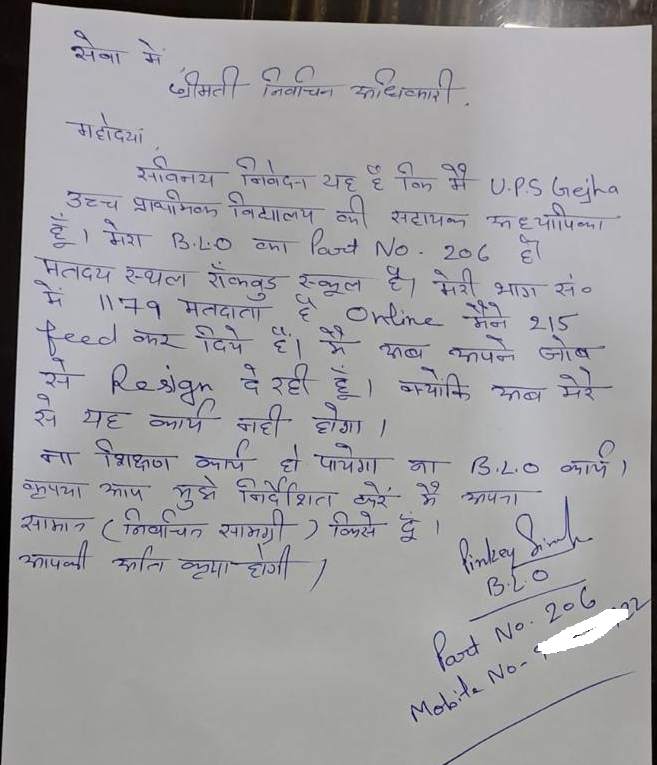 सेवा में
श्रीमती निर्वाचन अधिकारी.
महोदया,
सविनय निवेदन यह है कि मैं U.P.S Gejha
उच्च प्राथमिक विद्यालय की सहायक अध्यापिका
हूँ। मेरा B.L.O का Part No. 206 है।
मतदय स्थल रॉकवुड स्कूल है। मेरी भाग सं०
में 1179 मतदाता है Online मैंने 215
feed कर दिये हैं। मैं अब अपने जोब
से Resign दे रही हूँ। क्योंकि अब मेरे
से यह कार्य नही होगा।
ना शिक्षण कार्य हो पायेगा ना B.L.O कार्य।
कृपया आप मुझे निर्देशित करें मैं अपना
सामान (निर्वाचन सामग्री) किसे दूँ।
आपकी अति कृपा होगी।
Pinkey Singh
B.L.O
Part No. 206
Mobile No-